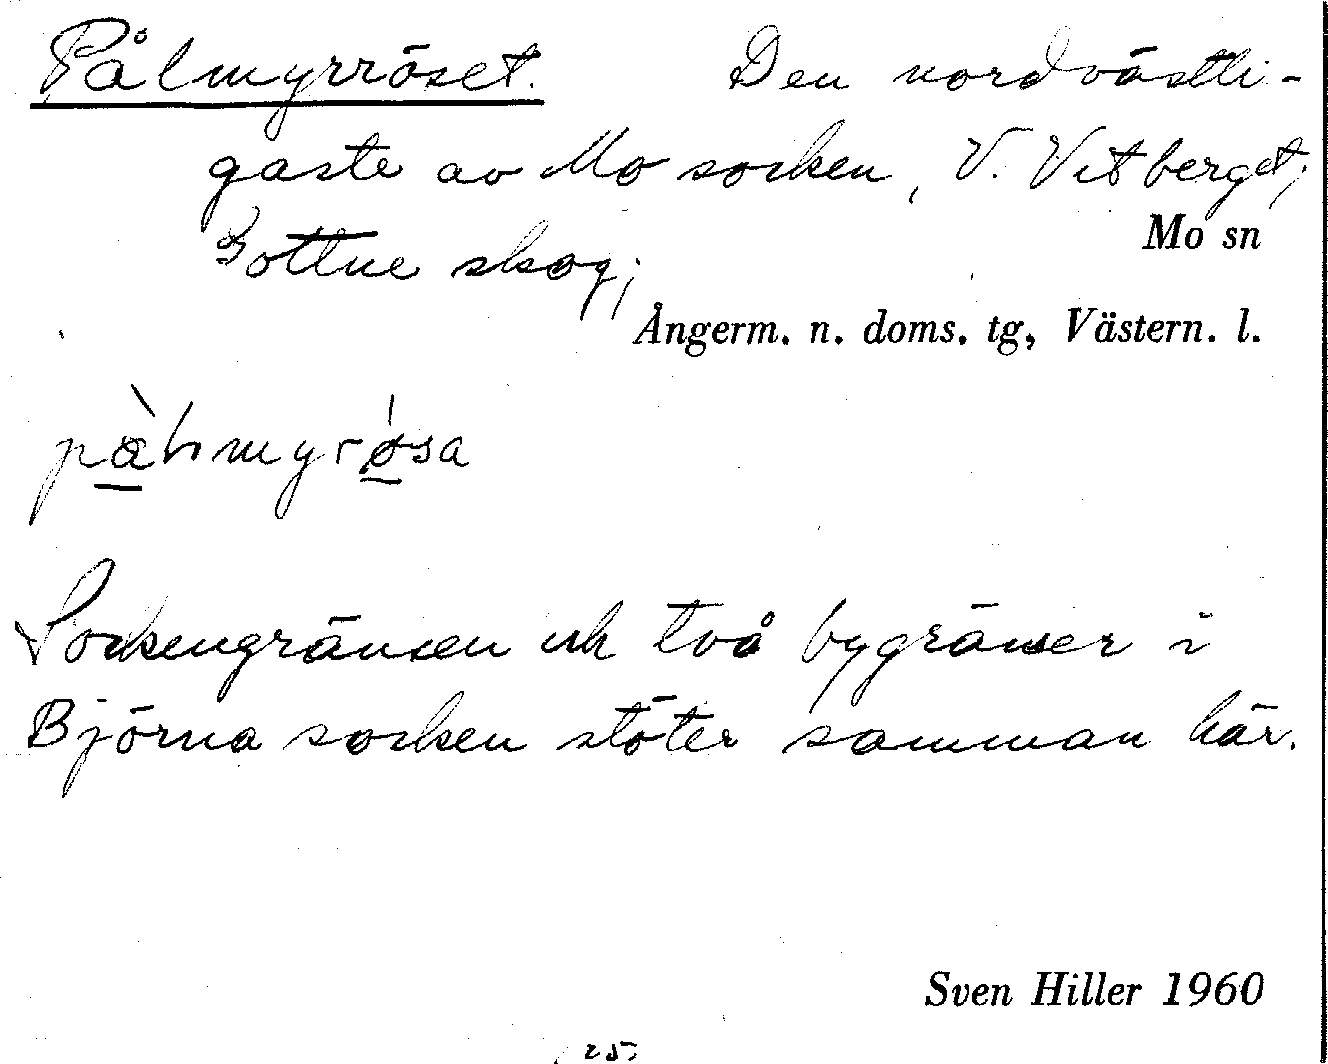 Pålmyrröset. Den nordvästli-
gaste av Mo socken, V. Vitberget,
Gottne skog;
Mo sn
Ångerm. n. doms. tg, Västern. l.
Sockengränsen och två bygränser i
Björna socken stöter samman här.
Sven Hiller 1960